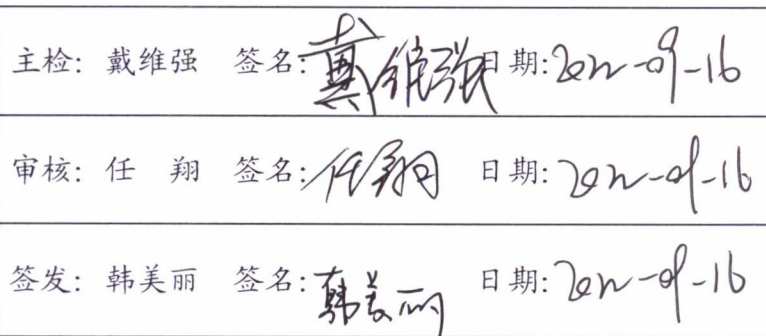 主检: 戴维强 签名: 戴维强 日期: 2022-09-16
审核: 任 翔 签名: 任翔 日期: 2022-09-16
签发: 韩美丽 签名: 韩美丽 日期: 2022-09-16